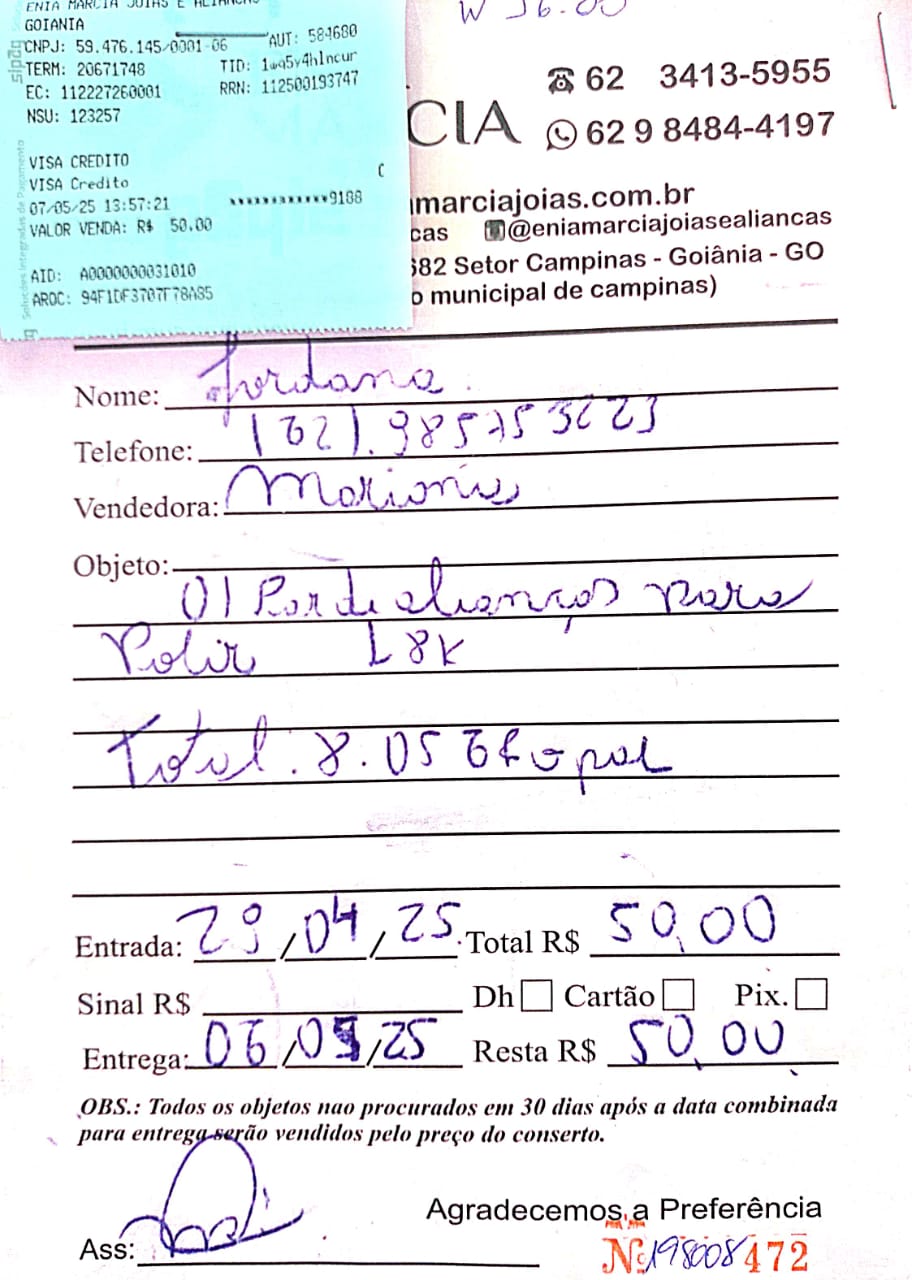 ENIA MARCIA JOIAS E ALIANCAS
GOIANIA
CNPJ: 59.476.145/0001-06 AUT: 584680
TERM: 20671748 TID:
EC: 112227260001 RRN: 112500193747
NSU: 123257
VISA CREDITO
VISA Credito C
07/05/25 13:57:21 ************9188
VALOR VENDA: R$ 50.00
AID: A0000000031010
AROC: 94F1DF3707F78A85
Soluções Integradas de Pagamento
62 3413-5955
CIA 62 9 8484-4197
marciajoias.com.br
cas @eniamarciajoiasealiancas
682 Setor Campinas - Goiânia - GO
o municipal de campinas)
Nome: Jordana
Telefone: (62).985753223
Vendedora:
Objeto:
01 Par de alianças para
Polir 18K
Total. 8.05
Entrada: 29/04/25. Total R$ 50,00
Sinal R$ Dh Cartão Pix.
Entrega: 06/05/25 Resta R$ 50,00
OBS.: Todos os objetos nao procurados em 30 dias após a data combinada
para entrega serão vendidos pelo preço do conserto.
Agradecemos a Preferência
Ass: Nº 198008472